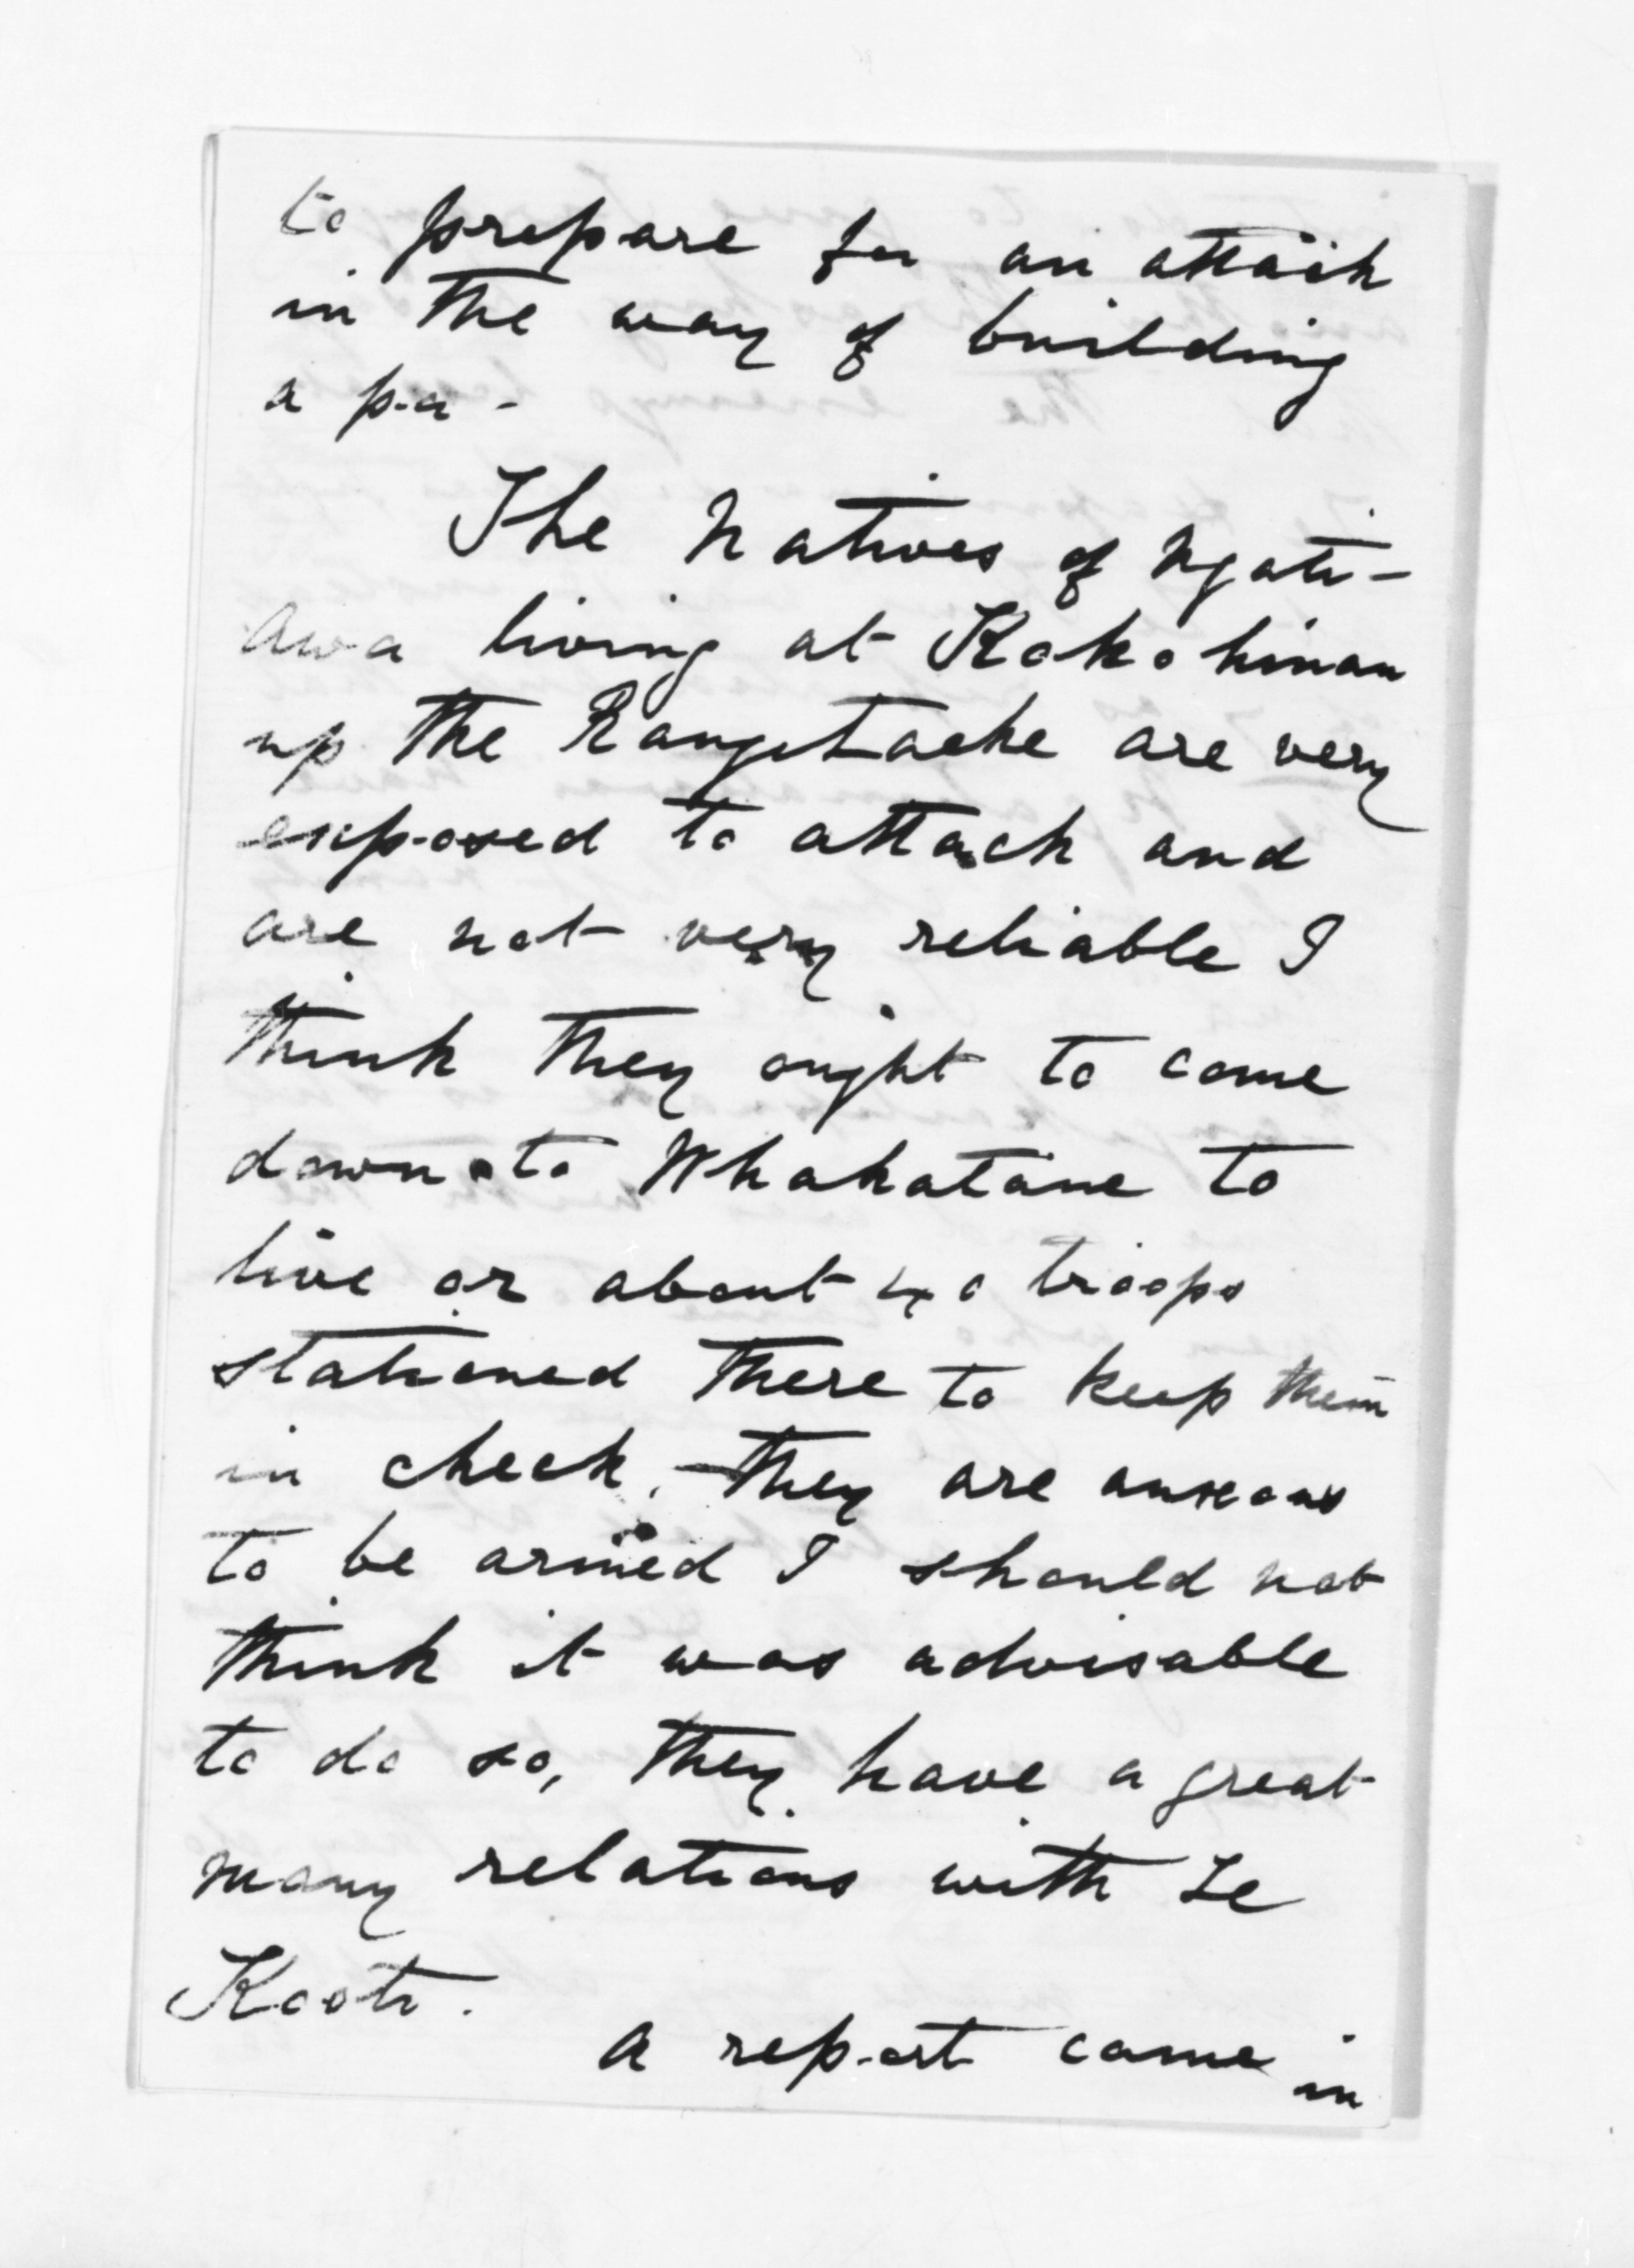 to prepare for an attack
in the way of building
a pa -
The Natives of Ngati-
awa living at Kokohinau
up the Rangitaeke are very
exposed to attack and
are not very reliable I
think they ought to come
down to Whakatane to
live or about 40 troops
stationed there to keep them
in check, - they are anxeous
to be armed I should not
think it was advisable
to do so, they have a great
many relations with Te
Kooti.
A report came in